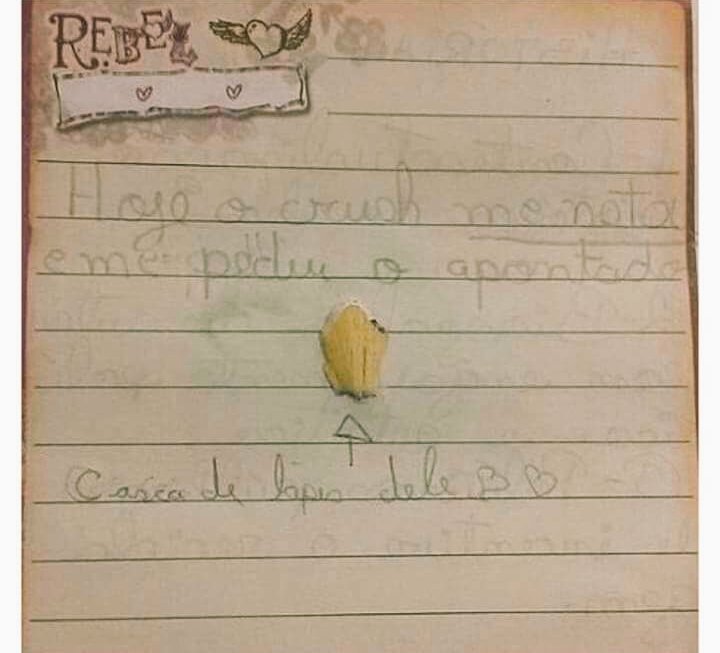 REBEL
Hoje o crush me nota
e me pediu o apontado
Casca de lápis dele